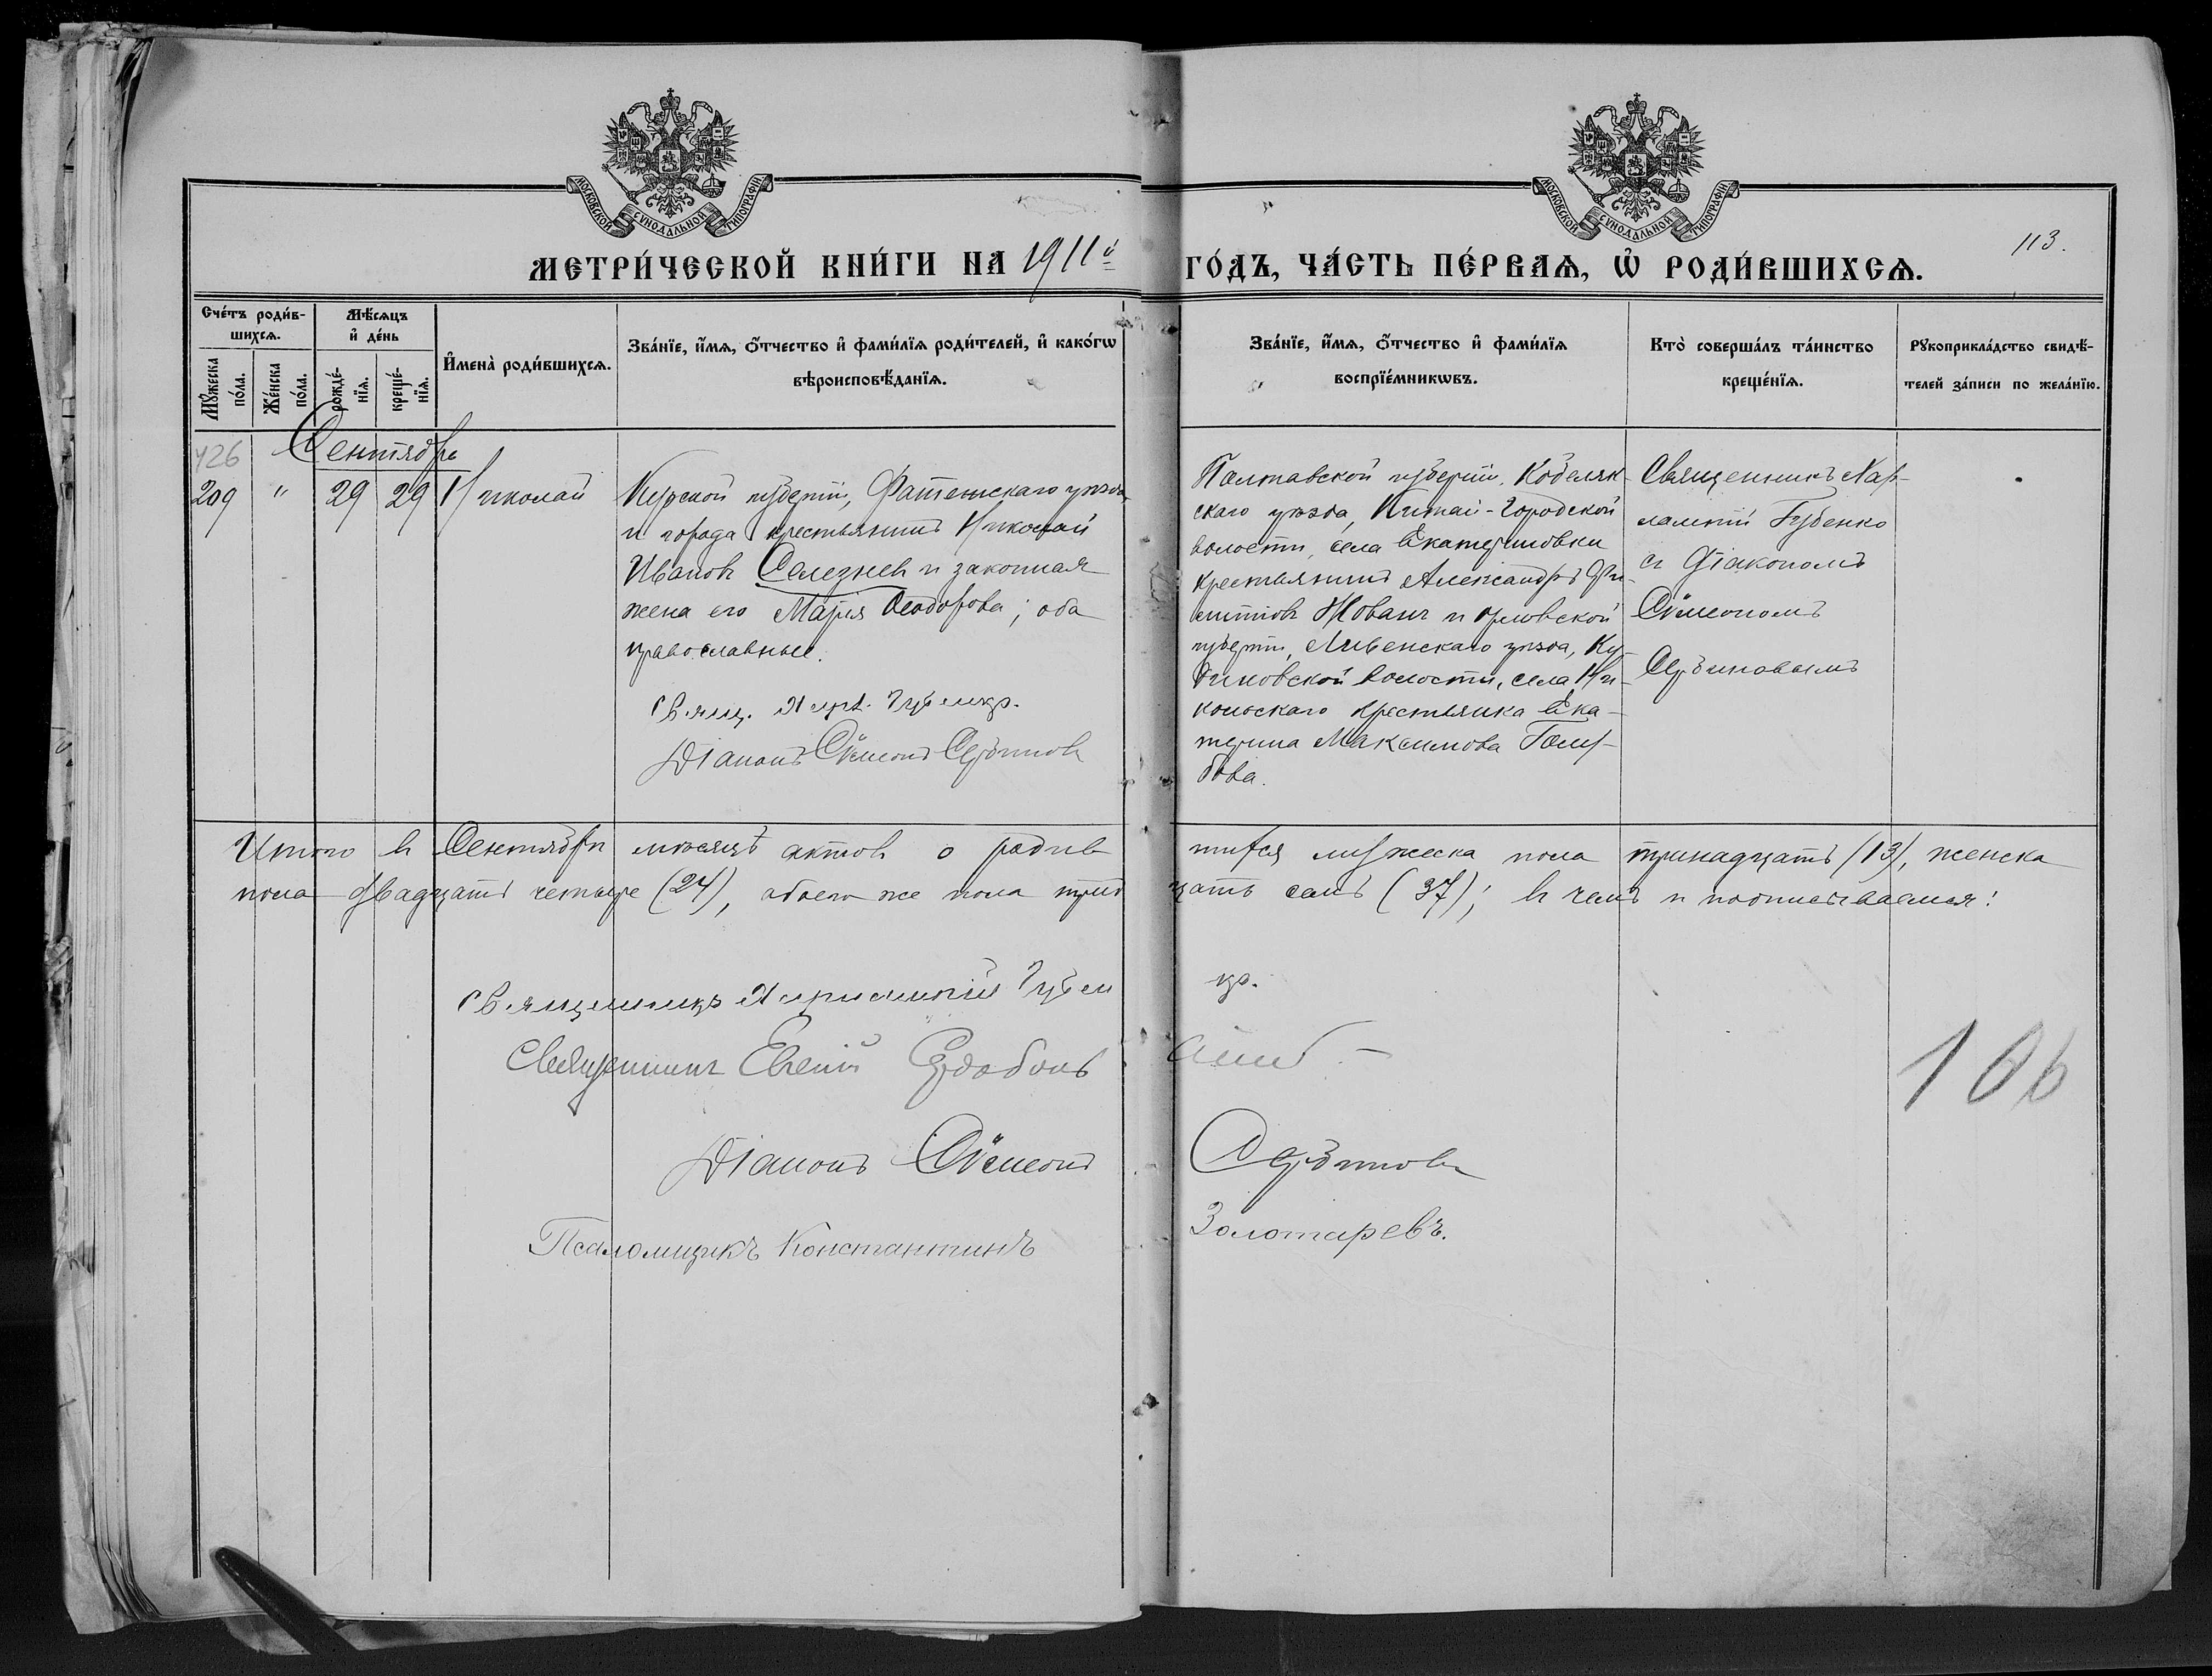 МОСКОВСКОЙ СѴНОДАЛЬНОЙ ТИПОГРАФІИ
МОСКОВСКОЙ СѴНОДАЛЬНОЙ ТИПОГРАФІИ
113.
МЕТРИ́ЧЕСКОЙ КНИ́ГИ НА 1911й ГО́ДЪ, ЧА́СТЬ ПЕ́РВАѦ, Ѽ РОДИ́ВШИХСѦ.
Сче́тъ роди́вшихсѧ.
Мꙋ́жеска по́ла.
Же́нска по́ла.
Мѣ́сѧцъ и҆ де́нь
рожде́нїѧ.
креще́нїѧ.
И҆мена̀ роди́вшихсѧ.
Зва́нїе, и҆́мѧ, ѻ҆́тчество и҆ фами́лїѧ роди́телей, и҆ како́гѡ
вѣроисповѣ́данїѧ.
Зва́нїе, и҆́мѧ, ѻ҆́тчество и҆ фами́лїѧ
воспрїе́мникѡвъ.
Кто̀ соверша́лъ та́инство
креще́нїѧ.
Рꙋкоприкла́дство свидѣ́-
телей за́писи по жела́нїю.
426
Сентябрь
209 " 29 29 Николай
Курской губерніи, Фатежскаго уѣзда
и города крестьянинъ Николай
Ивановъ Селезневъ и законная
жена его Марія Ѳеодорова; оба
православные.
Свящ. Харл. Губенко.
Діаконъ Сѵмеонъ Сербиновъ
Полтавской губерніи, Кобеляк-
скаго уѣзда, Китай-Городской
волости, села Екатериновки
крестьянинъ Александръ
Жованъ и Орловской
губерніи, Ливенскаго уѣзда,
волости, села Ни-
кольскаго крестьянка Ека-
терина Максимова Голу-
бова.
Священникъ Хар-
лампій Губенко
съ Діакономъ
Сѵмеономъ
Сербиновымъ
Итого въ Сентябрѣ мѣсяцѣ актовъ о родившихся мужеска пола тринадцать (13), женска
пола двадцать четыре (24), обоего же пола тридцать семь (37); въ чемъ и подписываемся:
Священникъ Харлампій Губенко.
Священникъ Евгеній
Діаконъ Сѵмеонъ Сербиновъ
Псаломщикъ Константинъ Золотаревъ.
106